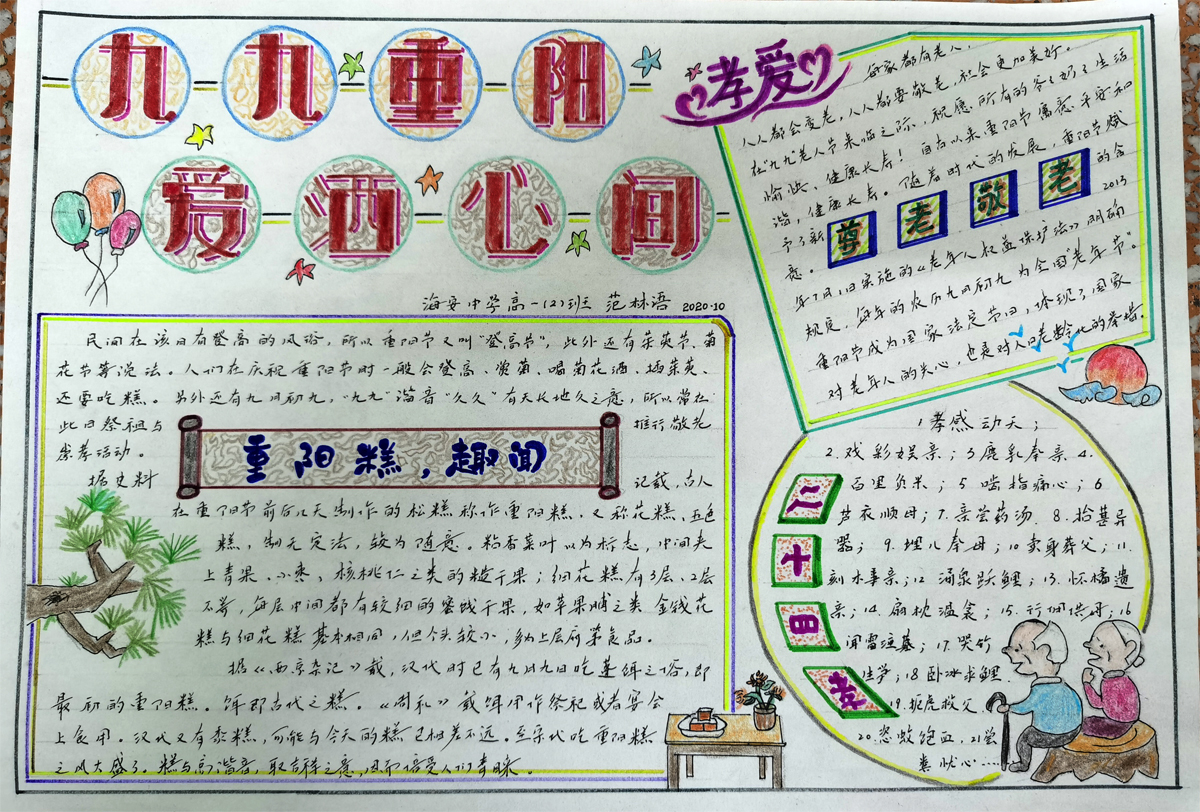 九九重阳
爱洒心间
海安中学高一(2)班 范林语 2020.10
孝爱
每家都有老人,
人人都会变老,人人都要敬老,社会更加美好。
在"九九"老人节来临之际,祝愿所有的爷爷奶奶生活
愉快、健康长寿!自古以来重阳节寓意平安和
谐,健康长寿。随着时代的发展,重阳节赋
予了新 尊老敬老 的含
意。 2013
年7月1日实施的《老年人权益保护法》明确
规定,每年的农历九月初九为全国"老年节"。
重阳节成为国家法定节日,体现了国家
对老年人的关心,也是对人口老龄化的举措。
民间在该日有登高的风俗,所以重阳节又叫"登高节",此外还有茱萸节、菊
花节等说法。人们在庆祝重阳节时一般会登高、赏菊、喝菊花酒、插茱萸、
还要吃糕。另外还有九月初九,"九九"谐音"久久"有天长地久之意,所以常在
此日祭祖与 推行敬老
崇孝活动。
重阳糕,趣闻
据史料 记载,古人
在重阳节前后几天制作的松糕称作重阳糕。又称花糕、五色
糕,制无定法,较为随意。粘香菜叶以为标志,中间夹
上青果、小枣、核桃仁之类的糙干果;细花糕有3层、2层
不等,每层中间都有较细的蜜饯干果,如苹果脯之类 金钱花
糕与细花糕基本相同,但个头较小,多为上层府第食品。
据《西京杂记》载,汉代时已有九月九日吃蓬饵之俗,即
最初的重阳糕。饵即古代之糕。《周礼》载饵用作祭祀或者宴会
上食用。汉代又有黍糕,可能与今天的糕已相差不远。至宋代吃重阳糕
之风大盛了。糕与高谐音,取吉祥之意,因而倍受人们青睐。
二十四孝
1孝感动天;
2.戏彩娱亲;3鹿乳奉亲 4.
百里负米;5 啮指痛心;6
芦衣顺母;7.亲尝药汤.8.拾葚异
器;9.埋儿奉母;10卖身葬父;11.
刻木事亲;12 涌泉跃鲤;13.怀橘遗
亲;14.扇枕温衾;15.行佣供母;16
闻雷泣墓;17.哭竹
生笋;18卧冰求鲤
19.扼虎救父.
20.恣蚊饱血,21尝
粪忧心……